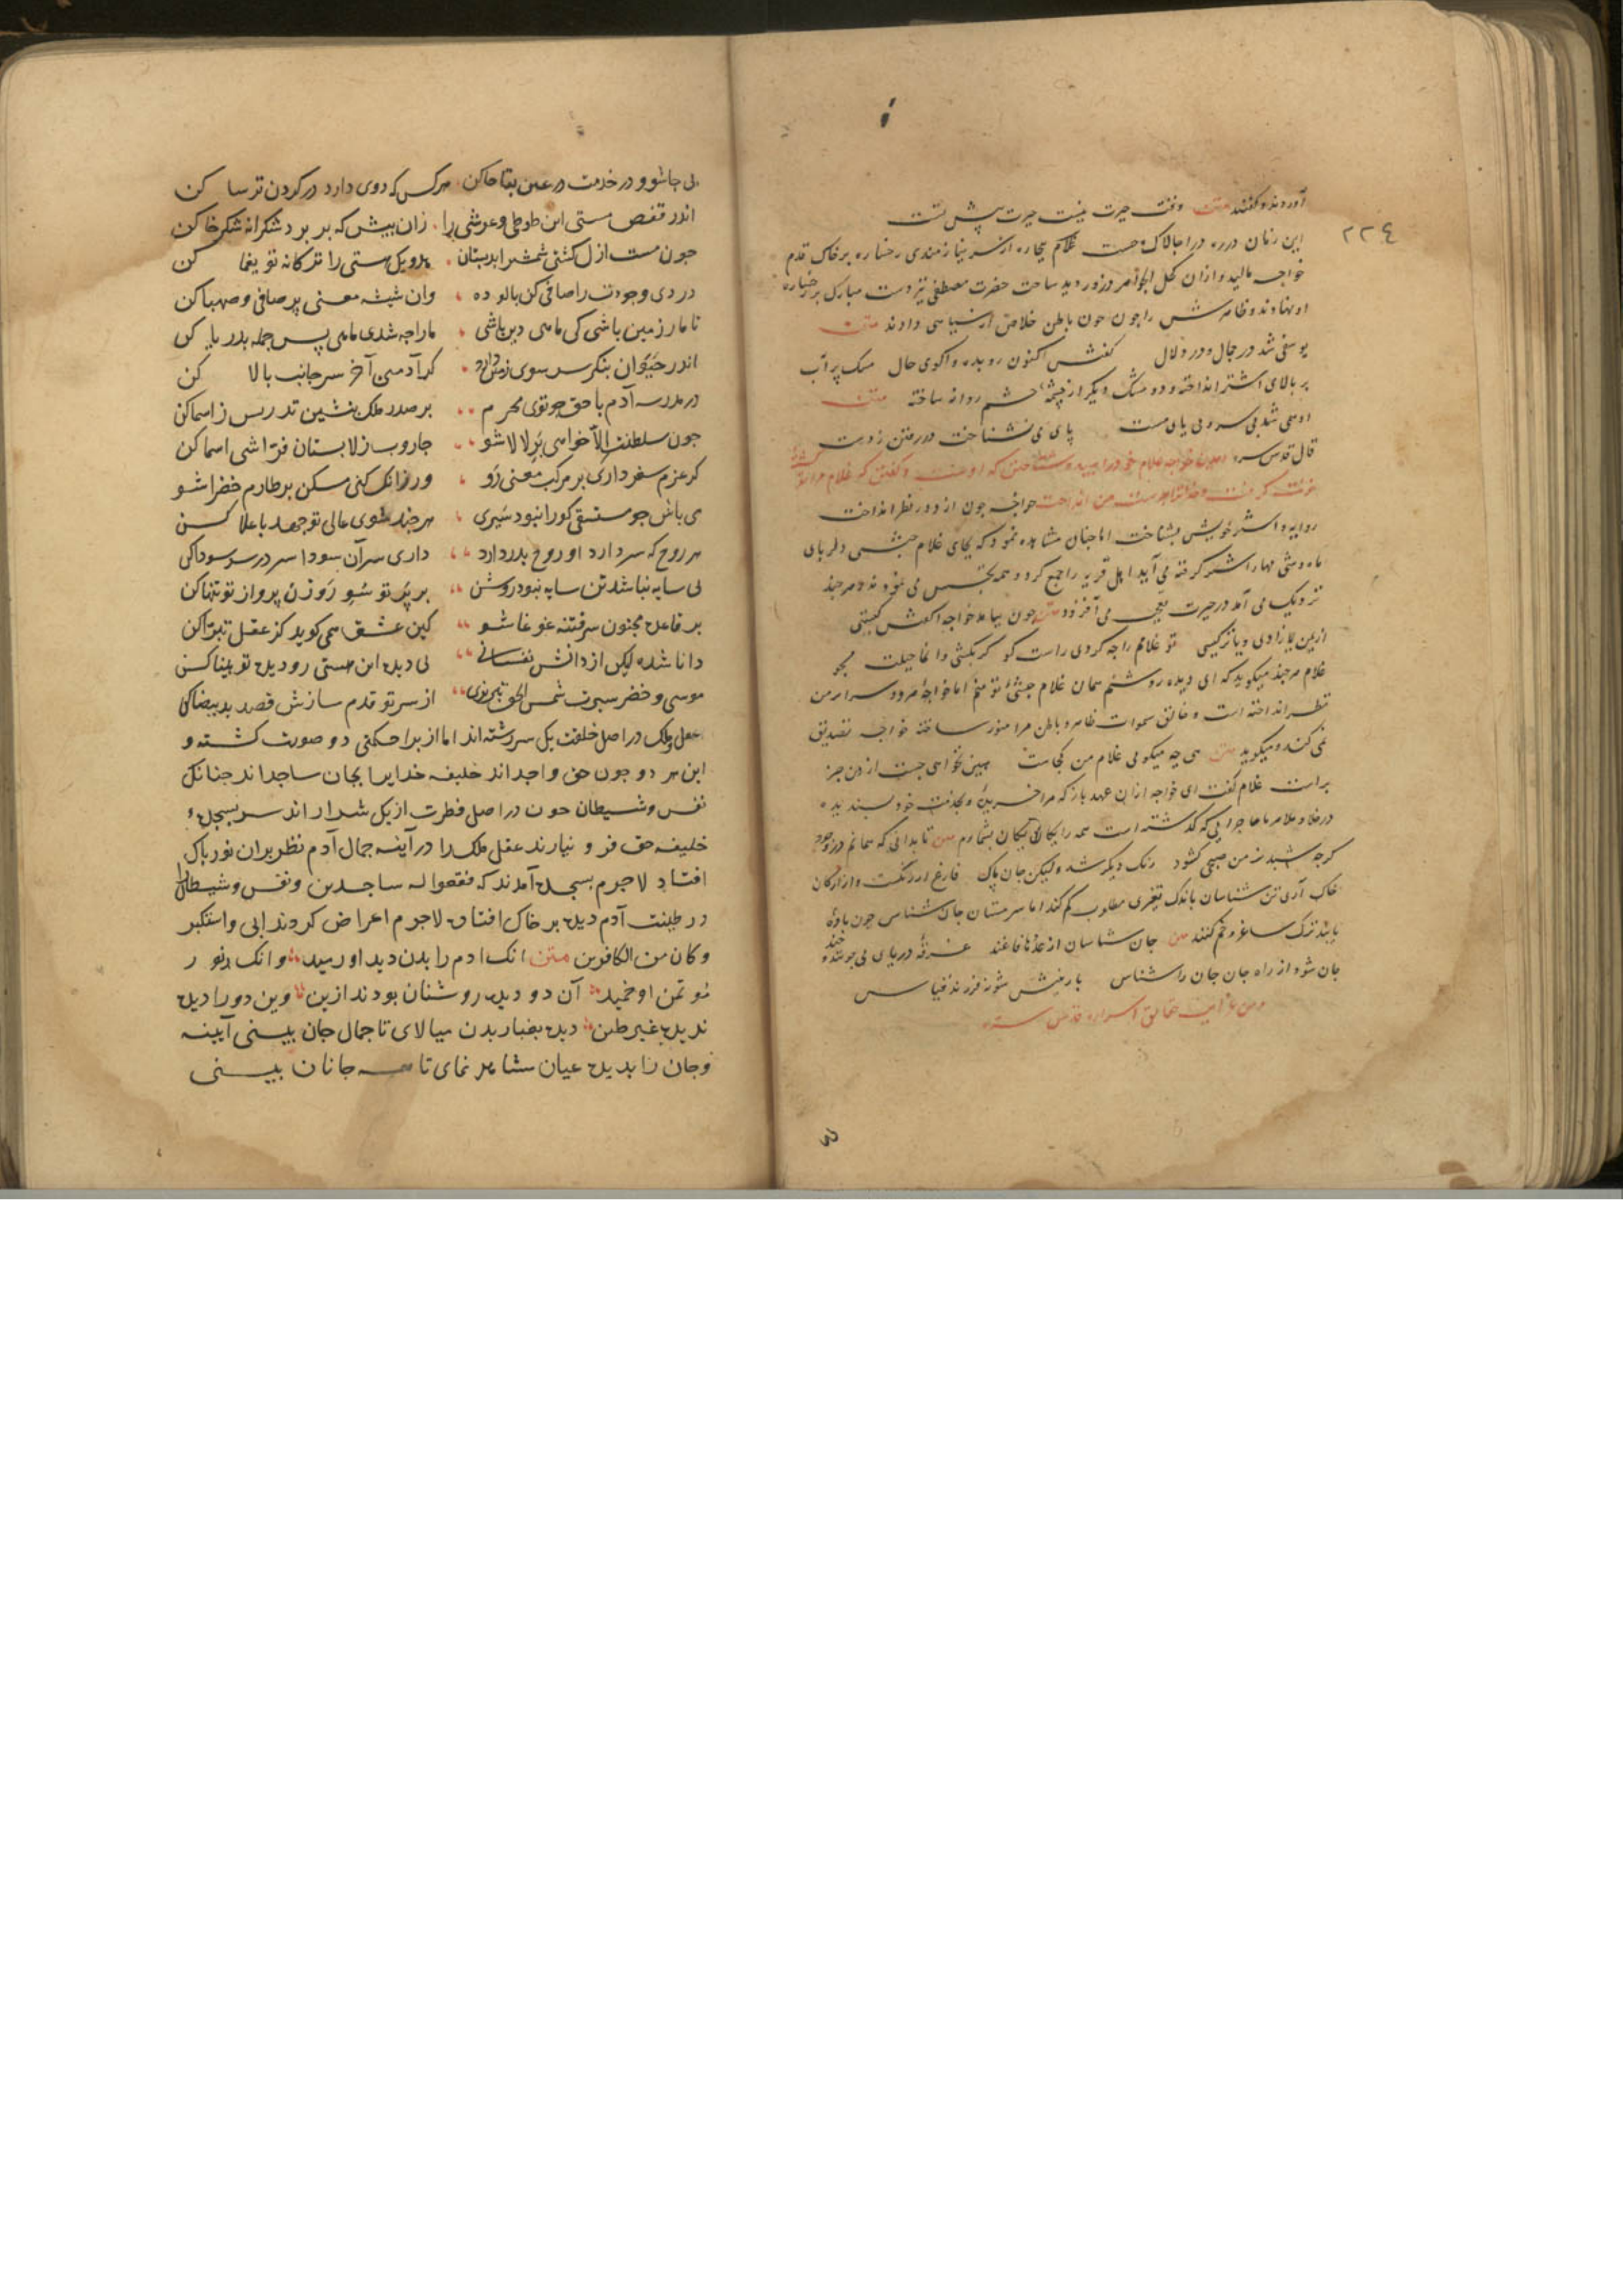 ٢٢٤
آوردند و گفتند متن وقت حیرت نیست حیرت پیش تست
این زمان در ره در آ چالاک و چست غلام بیچاره از سر نیازمندی رخساره بر خاک قدم
خواجه مالید و از آن کحل الجواهر دیده ساخت حضرت مصطفی نیز دست مبارک بر رخساره
او نهادند و ظاهرش را چون باطن خلاص از سیاهی دادند متن
یوسفی شد در جمال و در دلال گفتش اکنون رو بده واکوی حال مشک پر آب
بر بالای اشتر انداخته و دو مشک دیگر از چشمه چشم روانه ساخته متن
او همی شد بی سر و بی پای مست پای می نشناخت در رفتن ز دست
قال قدس سره خواجه غلام خود را سپید و که اوست و گفتن که غلام مرا تو کشته
خواجه چون از دور نظر انداخت
راویه و اشتر خویش بشناخت اما چنان مشاهده نمود که بجای غلام حبشی دلربای
ماه وشی مهار اشتر گرفته می آید اهل قریه را جمع کرد و همه تجسس می نمودند هر چند
نزدیک می آمد در حیرت می افزود متن چون بیامد خواجه گفتش کیستی
از یمن زادی و یا ترکیستی تو غلامم را چه کردی راست گو گر بکشتی وا نما حیلت مجو
غلام هر چند میگوید که ای دیده روشنم همان غلام حبشی تو منم اما خواجه هر دو سرا بر من
نظر انداخته است و خالق سموات ظاهر و باطن مرا منور ساخته خواجه تصدیق
نمی کند و میگوید متن هی چه میگویی غلام من کجاست هین نخواهی جست از من جز
براست غلام گفت ای خواجه از آن عهد باز که مرا خریده و بخدمت خود پسندیده
در خلا و ملا هر ماجرایی که گذشته است همه را یکان یکان بشمارم متن تا بدانی که همانم در وجود
گرچه شبدیز من صبحی گشود رنگ دیگر شد ولیکن جان پاک فارغ از رنگست و از ارکان
خاک آری تن شناسان باندک تغیری مطلوب گم کنند اما سرمستان جان شناس چون باده
یابند ترک ساغر و خم کنند متن جان شناسان از عددها فارغند غرقه دریای بی چونند و چند
جان شو و از راه جان جان را شناس یار بینش شو نه فرزند قیاس
بی جا شو و در خدمت در عین بقا جا کن هرکس که دوی دارد در گردن ترسا کن
اندر قفص هستی این طوطی و عرشی را زان پیش که بر پرد شکرانه شکرخا کن
چون مست ازل گشتی شمشیر ابد بستان هندویک هستی را ترکانه تو یغما کن
دردی وجودت را صافی کن پالوده وان شیشه معنی پر صافی و صهبا کن
تا مار زمین باشی کی ماهی دین باشی مارا چه شدی ماهی پس حمله بدریا کن
اندر حیوان بنگر سر سوی زمین دارد گر آدمیی آخر سر جانب بالا کن
در مدرسه آدم با حق چو توی محرم بر صدر ملک بنشین تدریس ز اسما کن
چون سلطنت الا خواهی بر لالا شو جاروب ز لا بستان فراشی اسما کن
گر عزم سفر داری بر مرکب معنی رو ور زانک کنی مسکن بر طارم خضرا شو
می باش چو مستسقی کورا نبود سیری هرچند شوی عالی تو جهد باعلا کن
هر روح که سر دارد او روح بدر دارد داری سر آن سودا سر در سر سودا کن
بی سایه نباشد تن سایه نبود روشن بر پر تو سوی روزن پرواز تو تنها کن
بر قاعده مجنون سرفتنه غوغا شو کین عشق همی گوید کز عقل تبرا کن
دانا شده لیکن از دانش نفسانی بی دیده این هستی رو دیده تو بینا کن
موسی و خضر سیرت شمس الحق تبریزی از سر تو قدم سازش قصد ید بیضا کن
عقل و ملک در اصل خلقت یک سررشته اند اما از برای حکمتی دو صورت گشته و
این هر دو چون حق واجد اند خلیفه خدایرا بجان ساجد اند چنانک
نفس و شیطان چون در اصل فطرت از یک شرار اند سر بسجده
خلیفه حق فرو نیارند عقل ملک را در آینه جمال آدم نظر بر آن نور پاک
افتاد لاجرم بسجده آمدند که فقعوا له ساجدین و نفس و شیطان را
در طینت آدم دیده بر خاک افتاد لاجرم اعراض کردند ابی و استکبر
و کان من الکافرین متن انک آدم را بدن دید او رمید وانک نور
مؤتمن او خمید آن دو دیده روشنان بودند ازین وین دو را دیده
ندیده غیر طین دیده بغبار بدن میالای تا جمال جان بینی آیینه
وجان را بدیده عیان مشاهر نمای تا همه جانان بینی